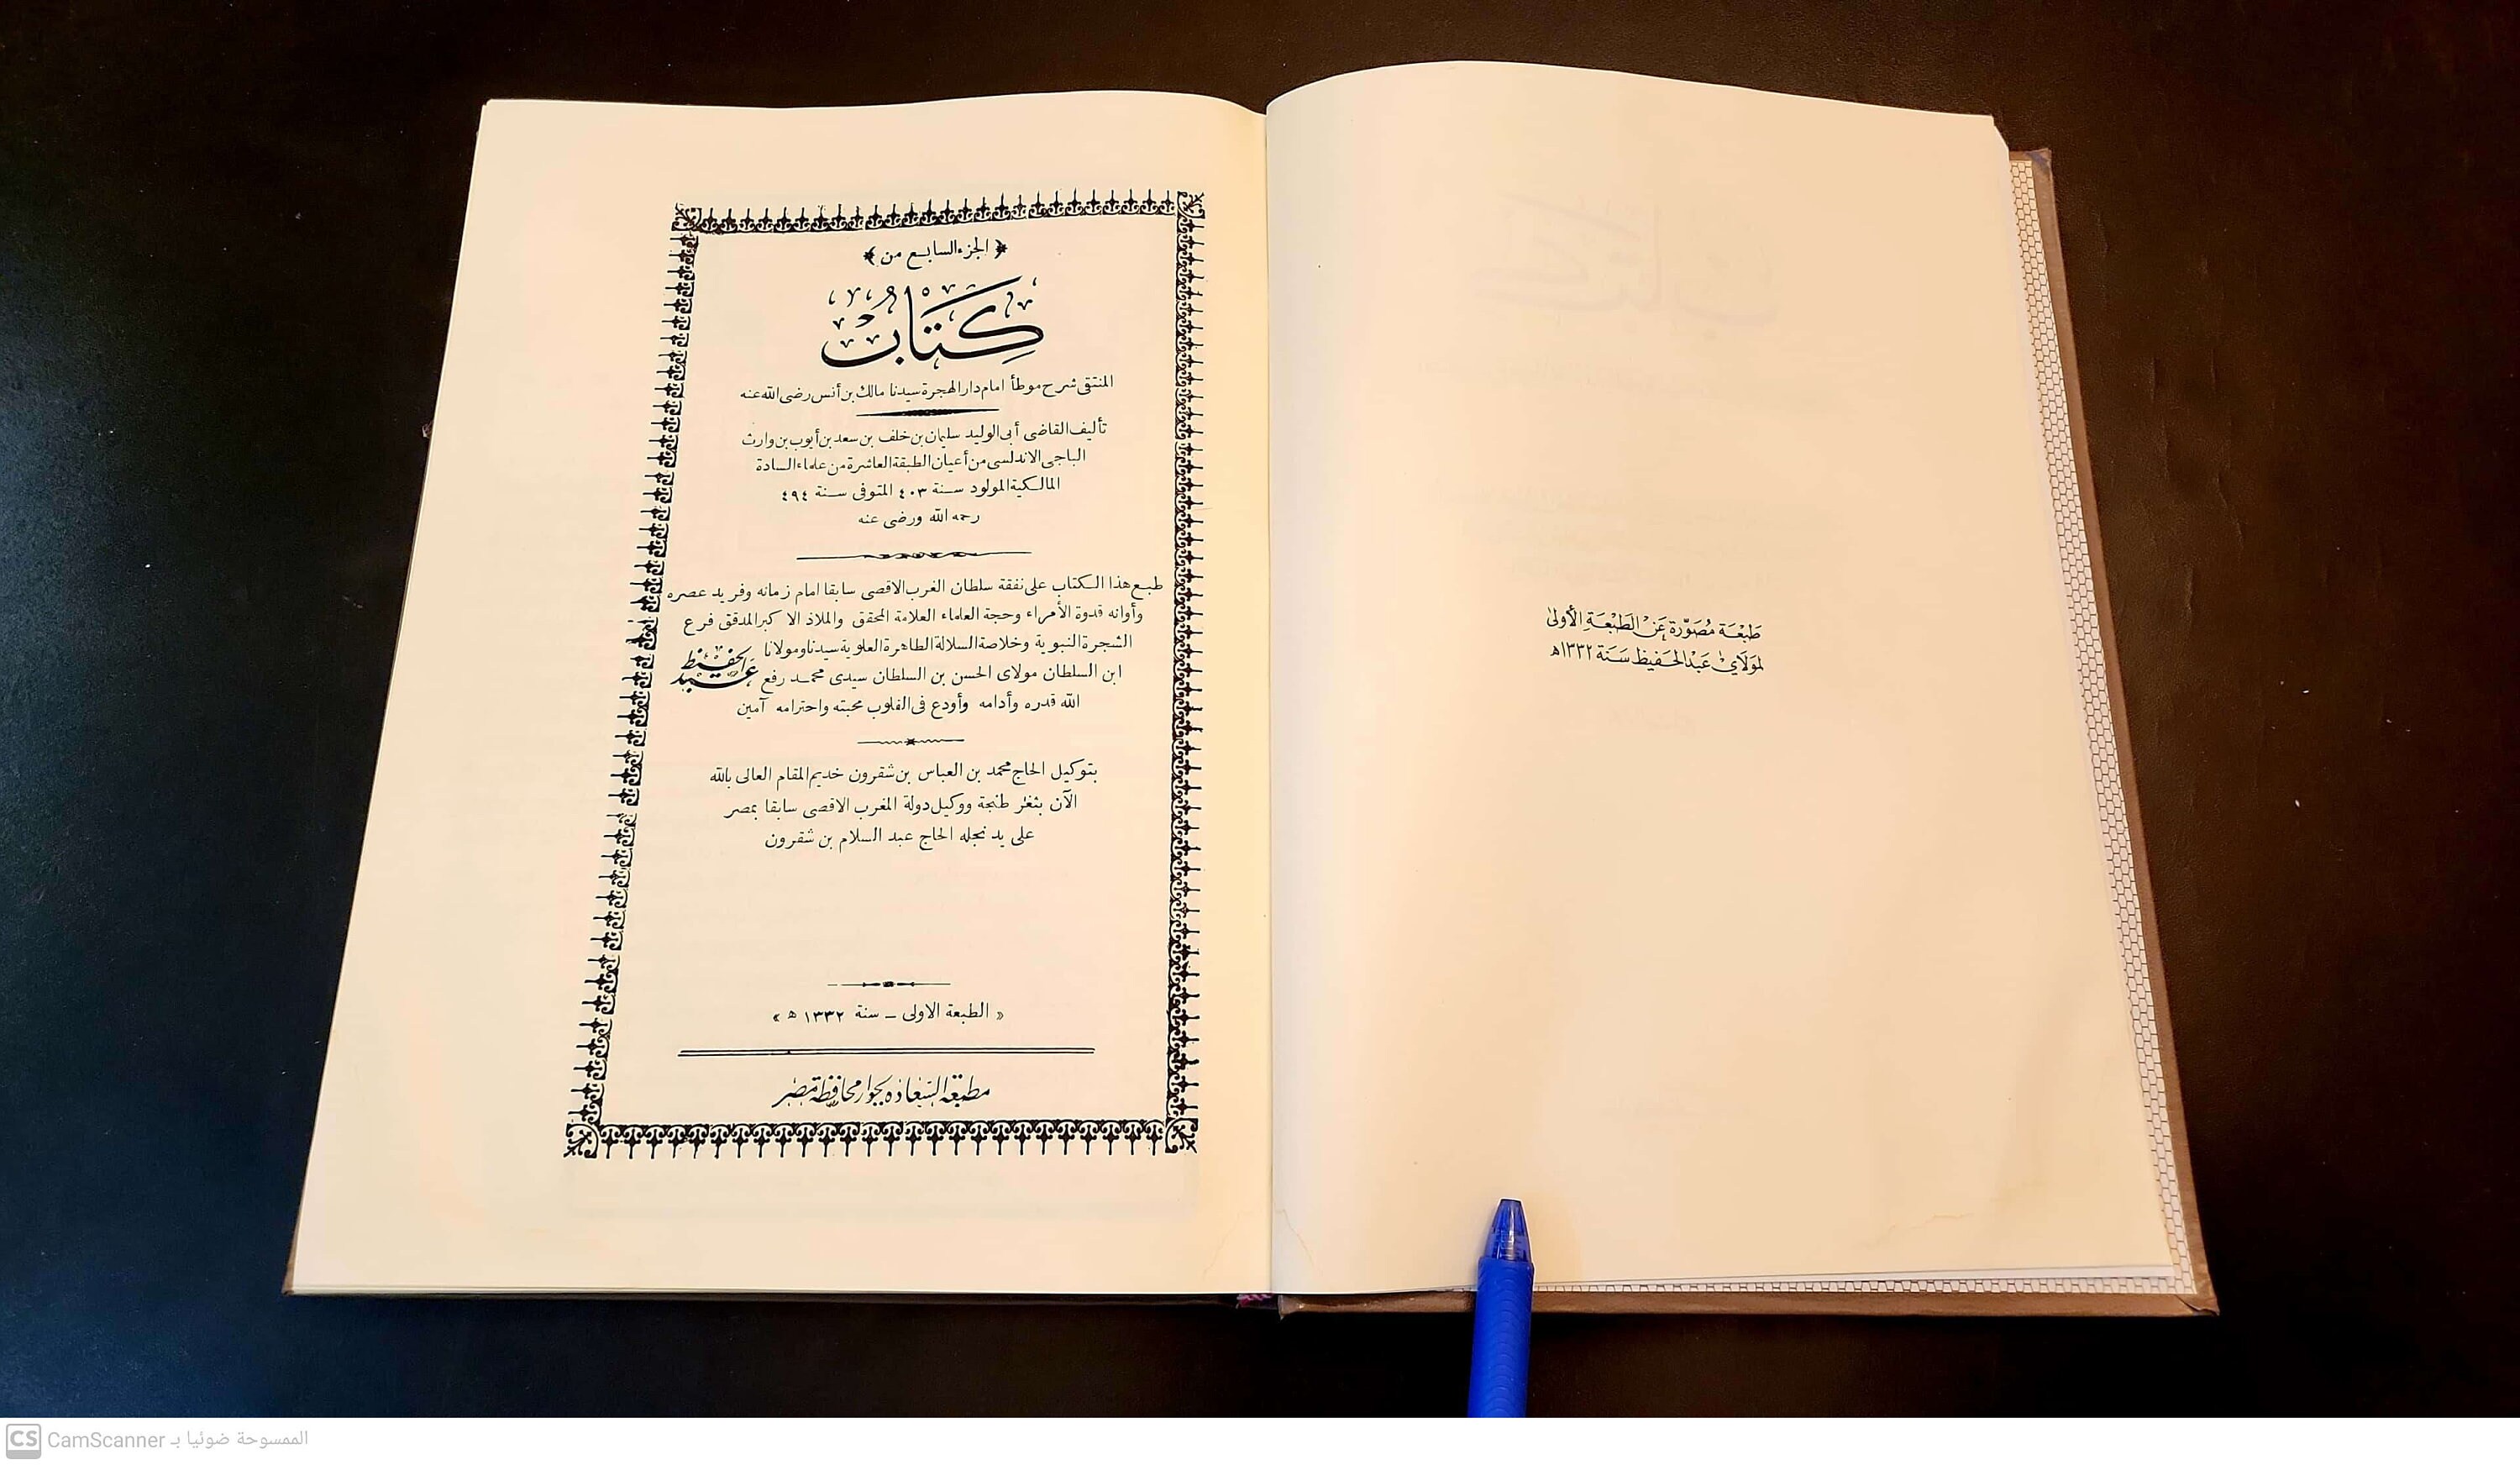 طَبْعَة مُصَوَّرَة عَنْ الطَبْعَةِ الأُولىٰ
لمَولَايْ عَبْدالحَفيظ سَنَة ١٣٣٢ه
﴿ الجزء السابع من ﴾
كِتَابُ
المنتقى شرح موطأ امام دار الهجرة سيدنا مالك بن أنس رضى الله عنه
تأليف القاضى أبى الوليد سليمان بن خلف بن سعد بن أيوب بن وارث
الباجى الاندلسى من أعيان الطبقة العاشرة من علماء السادة
المالكية المولود سنة ٤٠٣ المتوفى سنة ٤٩٤
رحمه الله ورضى عنه
طبع هذا الكتاب على نفقة سلطان الغرب الاقصى سابقا امام زمانه وفريد عصره
وأوانه قدوة الأمراء وحجة العلماء العلامة المحقق والملاذ الاكبر المدقق فرع
الشجرة النبوية وخلاصة السلالة الطاهرة العلوية سيدنا ومولانا عبد الحفيظ
ابن السلطان مولاى الحسن بن السلطان سيدى محمد رفع
الله قدره وأدامه وأودع فى القلوب محبته واحترامه آمين
بتوكيل الحاج محمد بن العباس بن شقرون خديم المقام العالى بالله
الآن بثغر طنجة ووكيل دولة المغرب الاقصى سابقا بمصر
على يد نجله الحاج عبد السلام بن شقرون
« الطبعة الاولى – سنة ١٣٣٢ ه »
مطبعة السعادة بجوار محافظة مصر
CS CamScanner الممسوحة ضوئيا بـ